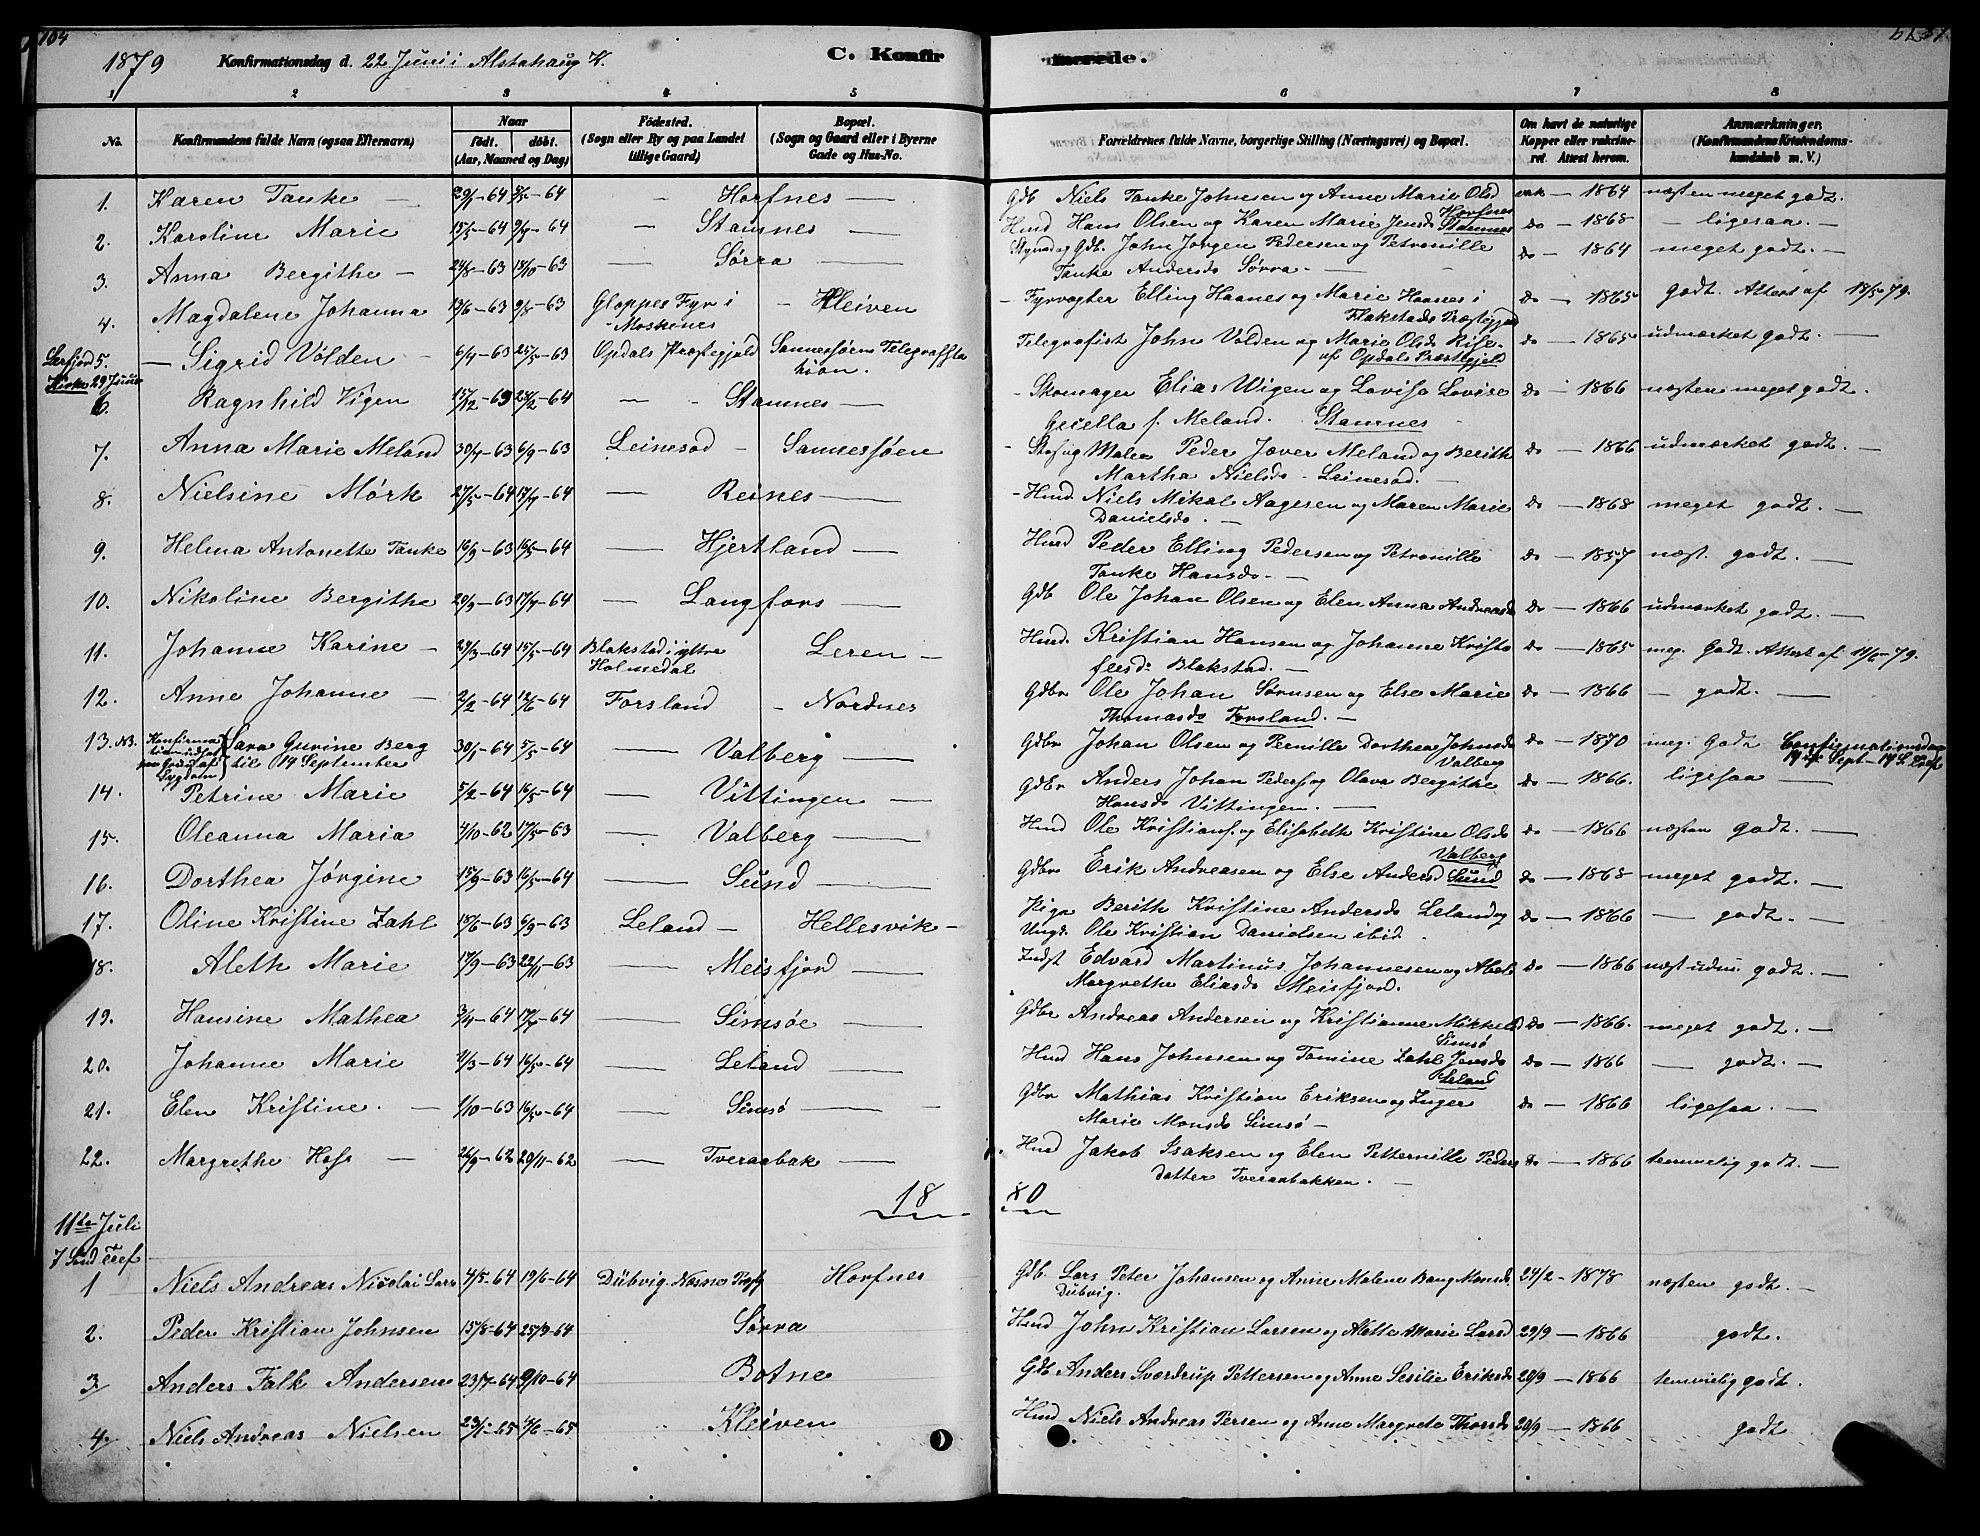 104
1879 Konfirmationsdag d. 22 Juni i Alstahaug K. C. Konfirmerede.
1 2 3 4 5 6 7 8
No. Konfirmandens fulde Navn (ogsaa Efternavn) Naar født. døbt. (Aar, Maaned og Dag) Fødested. (Sogn eller By og paa Landet tillige Gaard) Bopæl. (Sogn og Gaard eller i Byerne Gade og Hus-No. Forældrenes fulde Navne, borgerlige Stilling (Næringsvei) og Bopæl. Om havt de naturlige Kopper eller vakcineret. Attest herom. Anmærkninger. (Konfirmandens Kristendomskundskab m. V.)
1. Karen Tanke — 64 — 64 — Horfnes — Gdb Niels Tanke Johnsen og Anne Marie Olsd Horfnes vak — 1864 næsten meget godt.
2. Karoline Marie 15/5–64 — 64 — Stamnes — Hmd Hans Olsen og Karen Marie Jensd Stamnes do — 1868 — ligesaa. —
3. Anna Bergithe — 24/8–63 18/10–63 — Sørra — og Gdb. John Jørgen Pedersen og Petronille Tanke Andersd. Sørra. — do — 1864 meget godt. —
4. Magdalene Johanna 13/6–63 9/8–63 Gloppes Fyr i Moskenes — Kleiven — Fyrvogter Elling Haanes og Marie Haanes i Flakstads Præstegjeld do — 1865 Godt. Attest af 18/5 79.
Leirfjord Kirke 29 Juni
5. — Sigrid Volden 6/4–63 25/5–63 Opdals Præstegjeld Sannessøens Telegrafstation. Telegrafist John Volden og Marie Olsd. Rise af Opdals Præstegjeld do — 1865 udmærket godt. —
6. Ragnhild Vigen 17/12–63 28/2–64 — Stamnes — Skomager Elias Wigen og Lovisa Lovise f. Meland. Stamnes do — 1866 næsten meget godt.
7. Anna Marie Meland 30/4–63 6/9–63 Leinesod — Sannessøen — Maler Peder Jæver Meland og Berith Martha Nielsd. Leinesod. — do — 1866 udmærket godt. —
8. Nielsine Mørk 27/5–64 17/7–64 — Reines — Hmd. Niels Mikal Aagesen og Maren Marie Danielsd. — do — 1868 meget godt. —
9. Helma Antonette Tanke 16/9–63 16/5–64 — Hjertland — Hmd Peder Elling Pedersen og Petronille Tanke Hansd. — do — 1857 næst. godt. —
10. Nikoline Bergithe 20/9–63 17/7–64 — Langfors — Gdb Ole Johan Olsen og Elen Anna Andreasd do — 1866 udmærket godt. —
11. Johanne Karine — 27/3–64 15/5–64 Blakstad i yttre Holmedal Leren — Hmd. Kristian Hansen og Johanne Kristofersd. Blakstad. — do — 1865 meg. Godt. Attest af 11/6–79.
12. Anne Johanne — 2/2–64 12/6–64 Forsland — Nordnes Gdbr Ole Johan Sørnsen og Else Marie Thomasd. Forsland. — do — 1866 — godt. —
13. NB. Konfirmationen udsat paa Grund af Sygdom til 14 September Sara Gurine Berg 30/1–64 5/5–64 — Valberg — Gdbr Johan Olsen og Pernille Dorthea Johnsd. Valberg do — 1870 meg. Godt Confirmationsdag 14de Sept
14. Petrine Marie 5/2–64 16/5–64 — Vittingen — Gdbr Anders Johan Peders. og Olava Bergithe Hansd Vittingen. — do — 1866. ligesaa —
15. Oleanna Maria 4/10–62 17/5–63 — Valberg — Hmd Ole Kristians. og Elisabeth Kristine Olsd. Valberg do — 1866 næsten godt. —
16. Dorthea Jørgine 15/9–63 16/5–64 — Sund — Gdbr Erik Andreasen og Else Andersd Sund do — 1868 meget godt. —
17. Oline Kristine Zahl 18/6–63 6/9–63 Leland — Hellesvik — Pige Berith Kristine Andersd. Leland og Ungk. Ole Kristian Danielsen ibid. do — 1866 — godt. —
18. Aleth Marie 17/9–63 22/11–63 — Meisfjord — Indst Edvard Martinus Johannesen og Abel Margrethe Eliasd. Meisfjord. do — 1866 næst udm. godt. —
19. Hansine Mathea 3/4–64 17/7–64 — Simsøe — Gdbr Andreas Andersen og Kristianne Mikkelsd Simsø do — 1866. meget godt. —
20. Johanne Marie 1/3–64 16/5–64 — Leland — Hmd Hans Johnsen og Tomine Zahl Jensd. Leland do — 1866 — godt. —
21. Elen Kristine. — 1/10–63 16/5–64 — Simsø — Gdbr Mathias Kristian Eriksen og Inger Marie Monsd. Simsø — do — 1866 ligesaa. —
22. Margrethe Hofs — 26/9–62 20/11–62 — Tveraabak — Hmd Jakob Isaksen og Elen Petternille Pedersdatter Tveraabakken. — do — 1866 temmelig godt. —
18 80
11te Juli
7 Sønd Tref
1 Niels Andreas Nicolai Lars 4/5–64 19/6–64 Dübvig. Nesne Prgj Horfnes Gdb. Lars Peter Johansen og Anne Malene Bang Monsd. Dübvig. 24/2–1878 næsten godt. —
2. Peder Kristian Johnsen 15/8–64 25/9–64 Sørra Hmd John Kristian Larsen og Alette Marie Larsd 29/9 — 1866 godt.
3 Anders Falk Andersen 23/7–64 9/10–64 Botne Gdb Anders Sverdrup Pettersen og Anne Sesilie Eriksd. 20/9 — 1866 temmelig godt.
4. Niels Andreas Nielsen 23/1–65 4/6–65 Kleiven Hmd Niels Andreas Persen og Anne Margrete Thorsd. 20/9 — 1866 godt